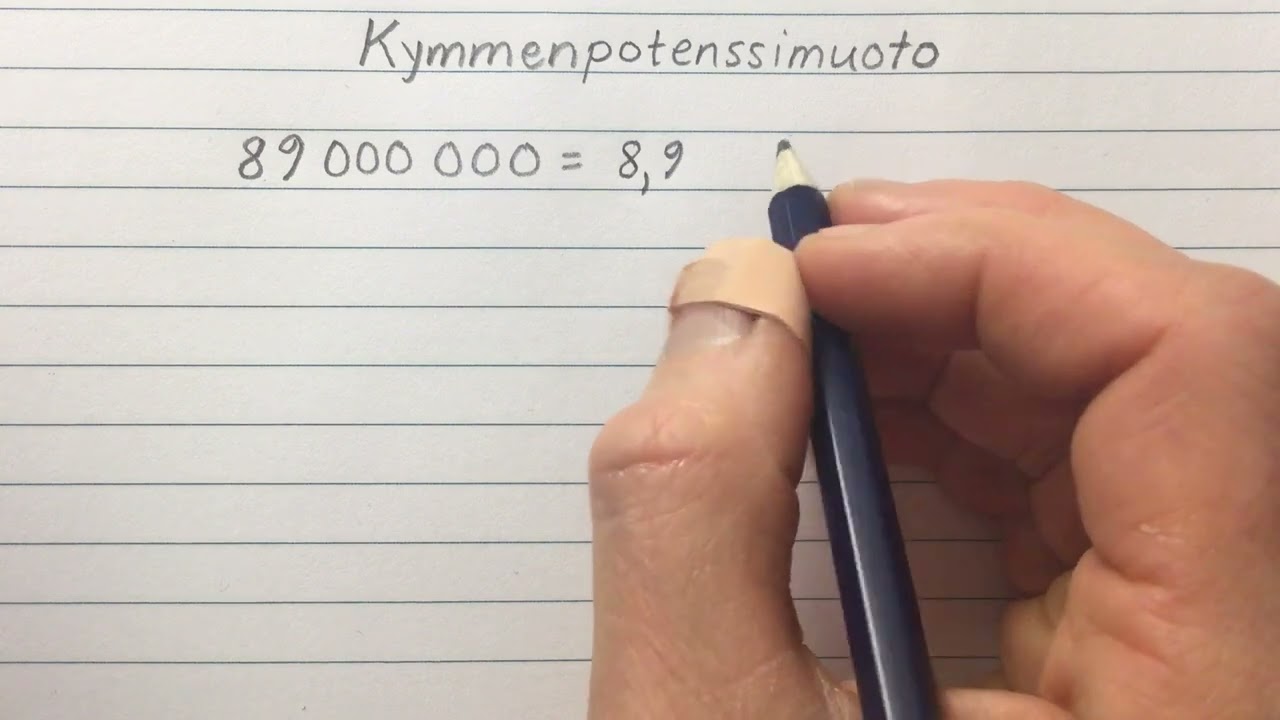 Kymmenpotenssimuoto
89 000 000 = 8,9